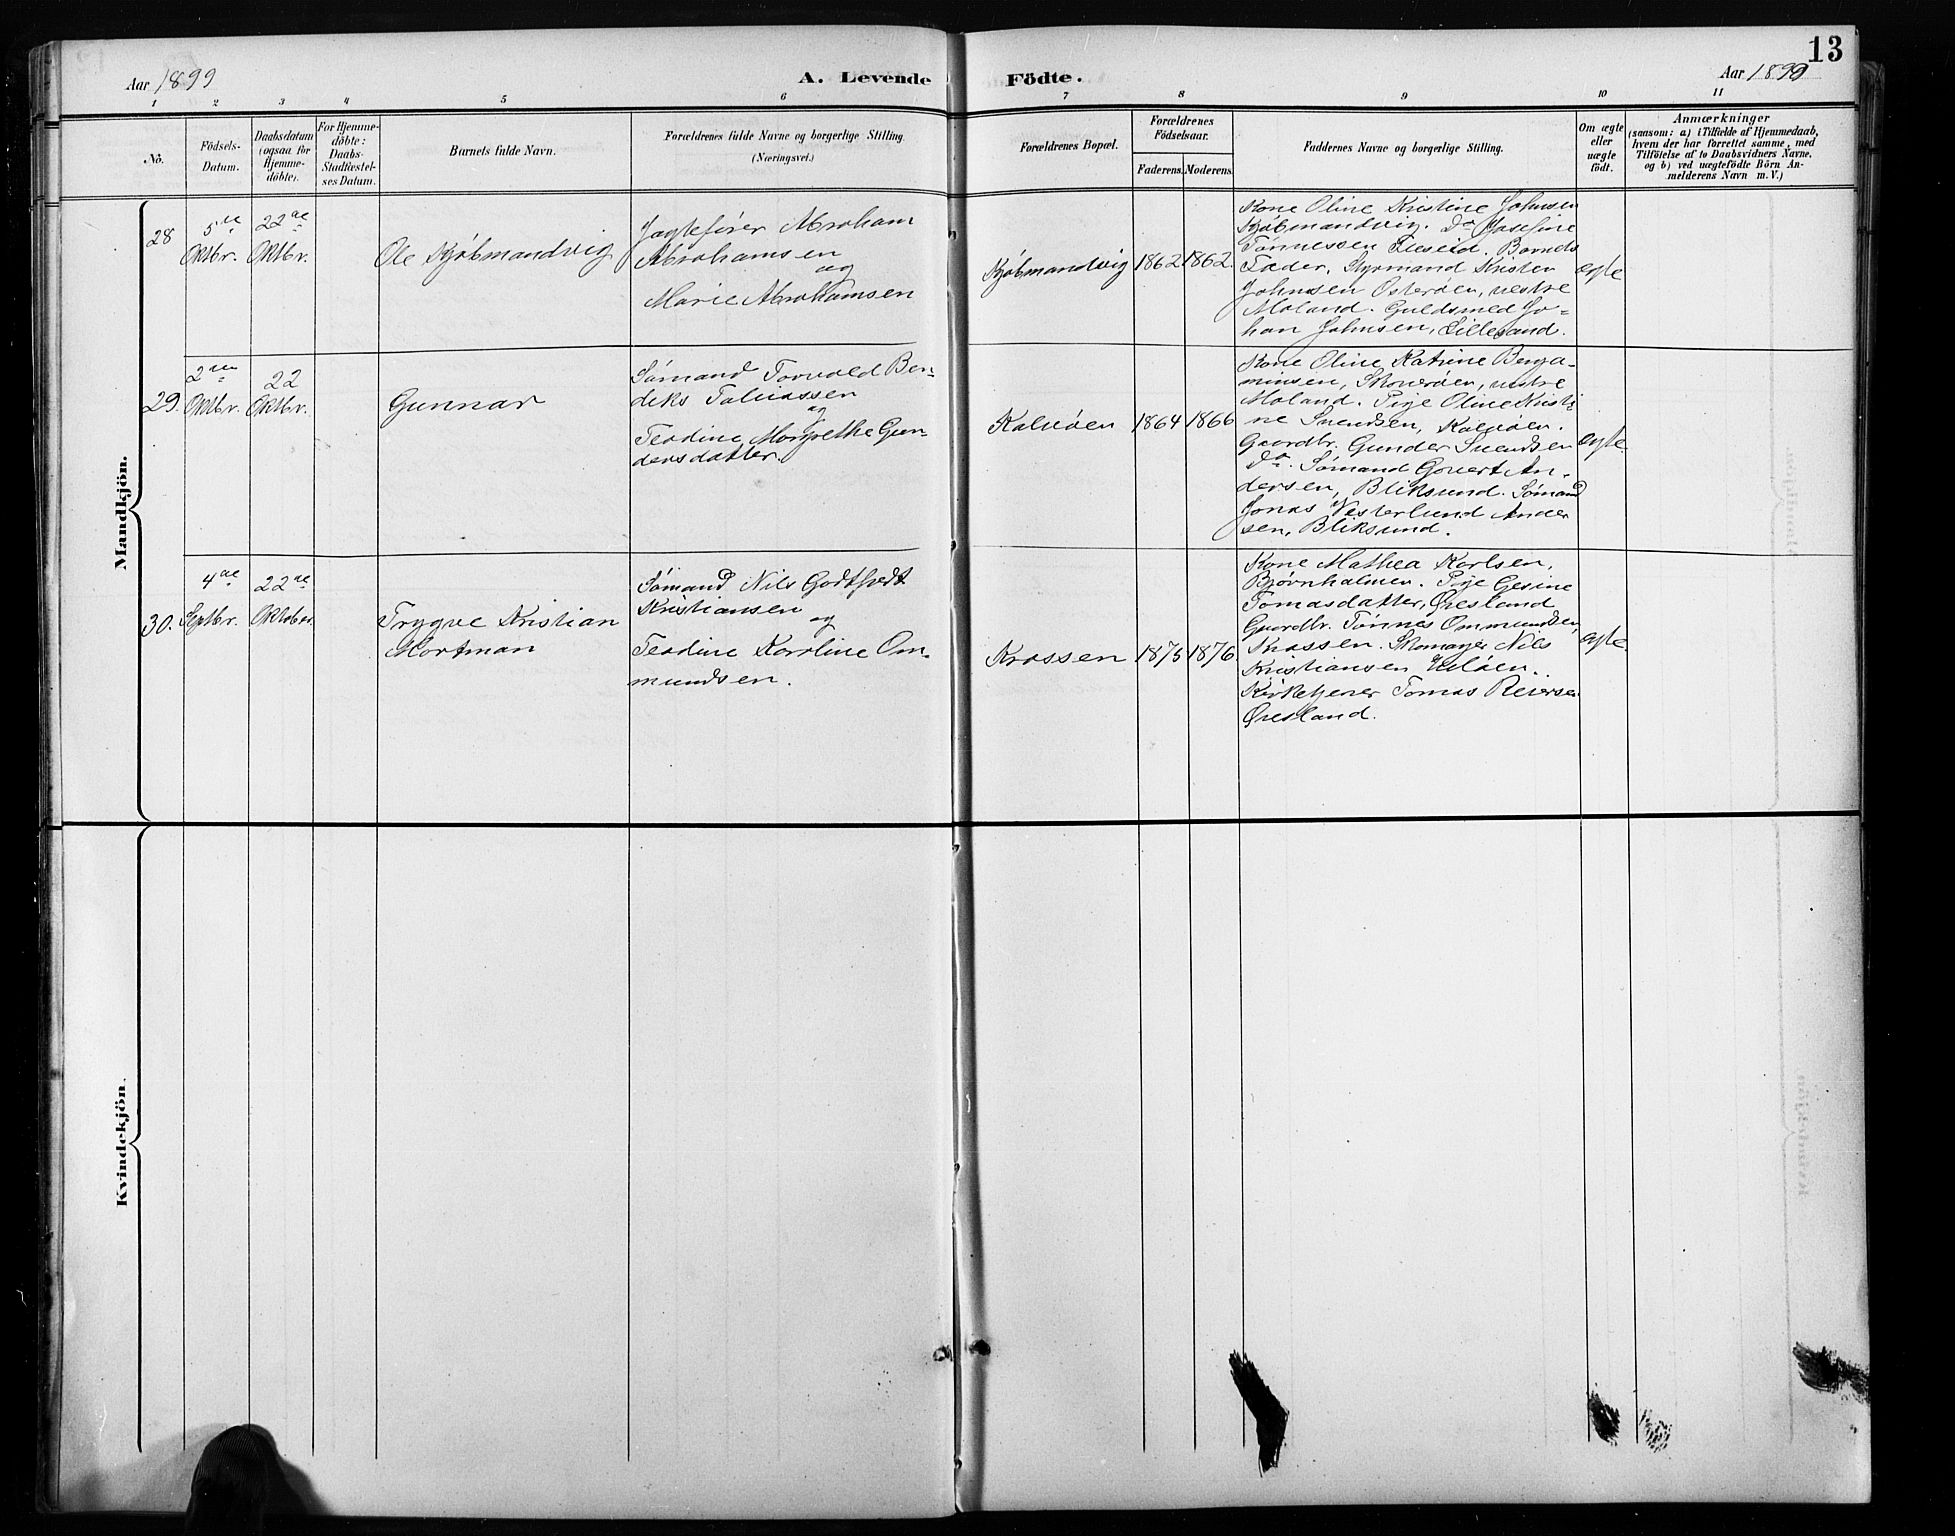 13
Aar 1899
A. Levende
Födte.
Aar 1899
1 2 3 4 5 6 7 8 9 10 11
No.
Födsels-
Datum.
Daabsdatum
(ogsaa for
Hjemme-
döbte).
For Hjemme-
döbte:
Daabs-
Stadfæstel-
ses Datum.
Barnets fulde Navn.
Forældrenes fulde Navne og borgerlige Stilling.
(Næringsvei.)
Forældrenes Bopæl.
Forældrenes
Födselsaar.
Faderens.
Moderens.
Faddernes Navne og borgerlige Stilling.
Om ægte
eller
uægte
födt.
Anmærkninger
(saasom: a) i Tilfælde af Hjemmedaab,
hvem der har forrettet samme, med
Tilföielse af to Daabsvidners Navne,
og b) ved uægtefödte Börn An-
melderens Navn m. V.)
Mandkjön.
28
5te
Oktbr.
22de
Oktbr.
Ole Kjøbmandvig
Jagtefører Abraham
Abrahamsen
og
Marie Abrahamsen
Kjøbmandvig
1862
1862.
Kone Oline Kristine Johnsen
Kjøbmandvig. Do Josefine
Tønnessen. Barnets
Fader, Styrmand Kristen
Johnsen Osterøen, vestre
Moland. Guldsmed Jo-
han Johnsen, Lillesand.
ægte
29.
2den
Oktbr.
22
Oktbr.
Gunnar
Sømand Torvald Ben-
diks Tobiassen
og
Teodine Margrethe Gun-
dersdatter.
Kalvøen
1864
1866
Kone Oline Katrine Benja-
minsen, vestre
Moland. Pige Oline Kristi-
ne Svendsen, Kalvøen.
Gaardbr. Gunder Svendsen
Do. Sømand Govert An-
dersen, Bliksund. Sømand
Jonas Vesterlund Ander
sen, Bliksund.
ægte.
30.
4de
Septbr.
22de
Oktober.
Trygve Kristian
Hartman
Sømand Nils Godtfredt
Kristiansen
og
Teodine Karoline Om-
mundsen.
Krossen
1875
1876.
Kone Mathea Karlsen,
Bjørnholmen. Pige Gesine
Tomasdatter, Øresland
Gaardbr. Tønnes Ommundsen,
Krossen. Skomager Nils
Kristiansen
Kirketjener Tomas Reiersen
Øresland.
ægte.
Kvindekjön.